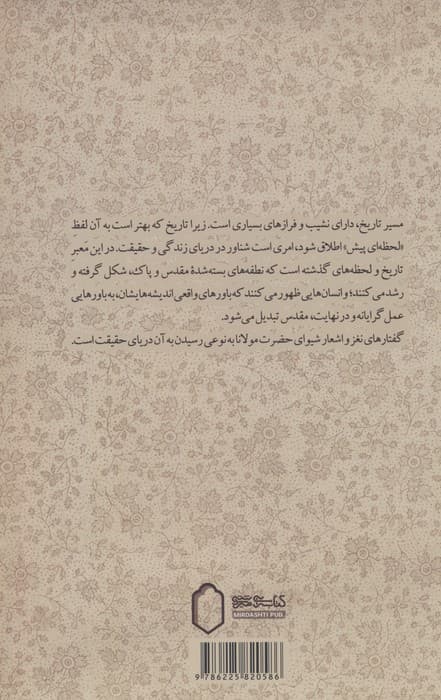 مسیر تاریخ، دارای نشیب و فرازهای بسیاری است. زیرا تاریخ که بهتر است به آن لفظِ
«لحظه‌ای پیش» اطلاق شود، امری است شناور در دریای زندگی و حقیقت. در این مَعبر
تاریخ و لحظه‌های گذشته است که نطفه‌های بسته‌شدهٔ مقدس و پاک، شکل گرفته و
رشد می‌کنند؛ و انسان‌هایی ظهور می‌کنند که باورهای واقعی اندیشه‌هایشان، به باورهایی
عمل‌گرایانه و در نهایت، مقدس تبدیل می‌شود.
گفتارهای نغز و اشعار شیوای حضرت مولانا به نوعی رسیدن به آن دریای حقیقت است.
کتابسرای میردشتی
MIRDASHTI PUB.
9 786225 820586